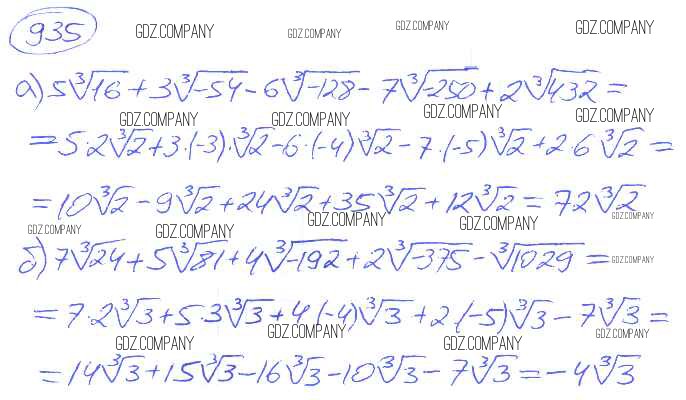 935 GDZ.COMPANY GDZ.COMPANY GDZ.COMPANY GDZ.COMPANY
а) 5∛16 + 3∛-54 - 6∛-128 - 7∛-250 + 2∛432 =
GDZ.COMPANY GDZ.COMPANY GDZ.COMPANY GDZ.COMPANY
= 5·2∛2 + 3·(-3)·∛2 - 6·(-4)∛2 - 7·(-5)∛2 + 2·6∛2 =
= 10∛2 - 9∛2 + 24∛2 + 35∛2 + 12∛2 = 72∛2
GDZ.COMPANY GDZ.COMPANY GDZ.COMPANY GDZ.COMPANY GDZ.COMPANY
б) 7∛24 + 5∛81 + 4∛-192 + 2∛-375 - ∛1029 = GDZ.COMPANY
= 7·2∛3 + 5·3∛3 + 4·(-4)∛3 + 2·(-5)∛3 - 7∛3 =
GDZ.COMPANY GDZ.COMPANY GDZ.COMPANY GDZ.COMPANY
= 14∛3 + 15∛3 - 16∛3 - 10∛3 - 7∛3 = -4∛3